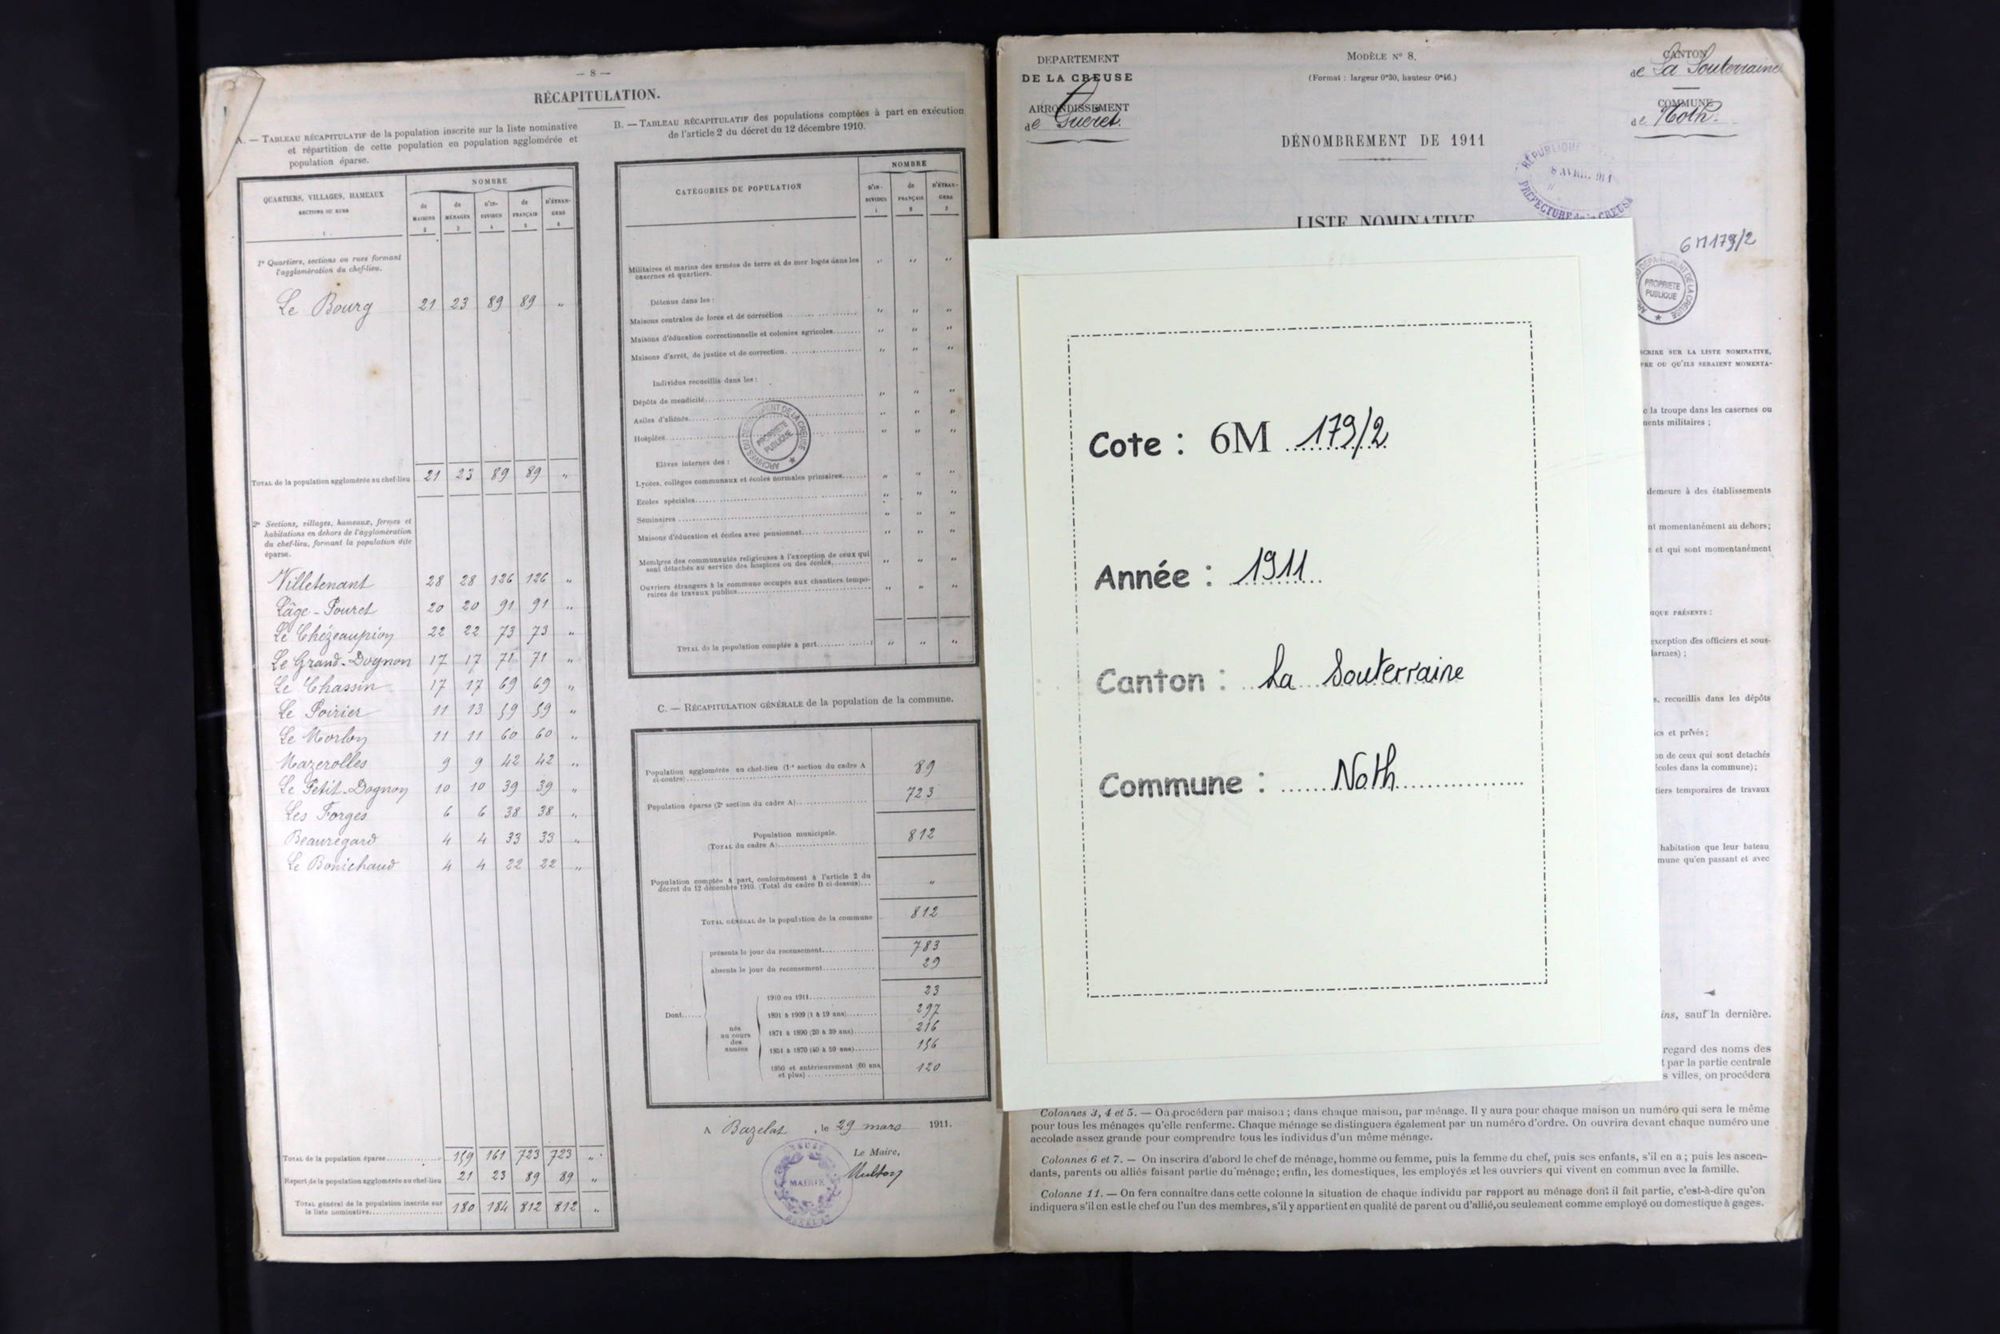 — 8 —
RÉCAPITULATION.
A. — TABLEAU RÉCAPITULATIF de la population inscrite sur la liste nominative
et répartition de cette population en population agglomérée et
population éparse.
QUARTIERS, VILLAGES, HAMEAUX
SECTIONS OU RUES
NOMBRE
de MAISONS
de MÉNAGES
D'IN-DIVIDUS
de FRANÇAIS
D'ÉTRAN-GERS
1° Quartiers, sections ou rues formant
l'agglomération du chef-lieu.
Le Bourg 21 23 89 89 "
TOTAL de la population agglomérée au chef-lieu 21 23 89 89 "
2° Sections, villages, hameaux, fermes et
habitations en dehors de l'agglomération
du chef-lieu, formant la population dite
éparse.
Villetenant 28 28 126 126 "
Lâge-Pouret 20 20 91 91 "
Le Chézeaupion 22 22 73 73 "
Le Grand-Dognon 17 17 71 71 "
Le Chassin 17 17 69 69 "
Le Poirier 11 13 59 59 "
Le Morlon 11 11 60 60 "
Mazerolles 9 9 42 42 "
Le Petit-Dognon 10 10 39 39 "
Les Forges 6 6 38 38 "
Beauregard 4 4 33 33 "
Le Bonichaud 4 4 22 22 "
TOTAL de la population éparse 159 161 723 723 "
Report de la population agglomérée au chef-lieu 21 23 89 89 "
TOTAL général de la population inscrite sur
la liste nominative 180 184 812 812 "
B. — TABLEAU RÉCAPITULATIF des populations comptées à part en exécution
de l'article 2 du décret du 12 décembre 1910.
CATÉGORIES DE POPULATION
NOMBRE
D'IN-DIVIDUS 1
de FRANÇAIS 2
D'ÉTRAN-GERS 3
Militaires et marins des armées de terre et de mer logés dans les
casernes et quartiers. " " "
Détenus dans les :
Maisons centrales de force et de correction " " "
Maisons d'éducation correctionnelle et colonies agricoles " " "
Maisons d'arrêt, de justice et de correction " " "
Individus recueillis dans les :
Dépôts de mendicité " " "
Asiles d'aliénés " " "
Hospices " " "
Elèves internes des :
Lycées, collèges communaux et écoles normales primaires " " "
Ecoles spéciales " " "
Séminaires " " "
Maisons d'éducation et écoles avec pensionnat " " "
Membres des communautés religieuses à l'exception de ceux qui
sont détachés au service des hospices ou des écoles " " "
Ouvriers étrangers à la commune occupés aux chantiers tempo-
raires de travaux publics " " "
TOTAL de la population comptée à part " " "
ARCHIVES DU DEPARTEMENT DE LA CREUSE
PROPRIETE
PUBLIQUE
C. — RÉCAPITULATION GÉNÉRALE de la population de la commune.
Population agglomérée au chef-lieu (1re section du cadre A
ci-contre) 89
Population éparse (2e section du cadre A) 723
Population municipale.
(TOTAL du cadre A) 812
Population comptée à part, conformément à l'article 2 du
décret du 12 décembre 1910. (Total du cadre B ci-dessus) "
TOTAL GÉNÉRAL de la population de la commune 812
présents le jour du recensement 783
absents le jour du recensement 29
Dont
nés
au cours
des
années
1910 ou 1911 23
1891 à 1909 (1 à 19 ans) 297
1871 à 1890 (20 à 39 ans) 216
1851 à 1870 (40 à 59 ans) 156
1850 et antérieurement (60 ans
et plus) 120
A Bazelat, le 29 mars 1911.
Le Maire,
MAIRIE
DEPARTEMENT
DE LA CREUSE
ARRONDISSEMENT
de Guéret.
MODÈLE N° 8.
(Format : largeur 0m30, hauteur 0m46.)
DÉNOMBREMENT DE 1911
LISTE NOMINATIVE
CANTON
de La Souterraine
COMMUNE
de Noth.
RÉPUBLIQUE
8 AVRIL 911
PRÉFECTURE de la CREUSE
6M179/2
PROPRIETE
PUBLIQUE
Cote : 6M 179/2
Année : 1911
Canton : La Souterraine
Commune : Noth
CRIRE SUR LA LISTE NOMINATIVE,
RE OU QU'ILS SERAIENT MOMENTA-
la troupe dans les casernes ou
ents militaires ;
demeure à des établissements
nt momentanément au dehors;
et qui sont momentanément
QUE PRÉSENTS :
exception des officiers et sous-
darmes) ;
s, recueillis dans les dépôts
ics et privés ;
on de ceux qui sont détachés
écoles dans la commune) ;
tiers temporaires de travaux
habitation que leur bateau
mune qu'en passant et avec
ins, sauf la dernière.
regard des noms des
t par la partie centrale
s villes, on procédera
Colonnes 3, 4 et 5. — On procédera par maison ; dans chaque maison, par ménage. Il y aura pour chaque maison un numéro qui sera le même
pour tous les ménages qu'elle renferme. Chaque ménage se distinguera également par un numéro d'ordre. On ouvrira devant chaque numéro une
accolade assez grande pour comprendre tous les individus d'un même ménage.
Colonnes 6 et 7. — On inscrira d'abord le chef de ménage, homme ou femme, puis la femme du chef, puis ses enfants, s'il en a ; puis les ascen-
dants, parents ou alliés faisant partie du ménage; enfin, les domestiques, les employés et les ouvriers qui vivent en commun avec la famille.
Colonne 11. — On fera connaître dans cette colonne la situation de chaque individu par rapport au ménage dont il fait partie, c'est-à-dire qu'on
indiquera s'il en est le chef ou l'un des membres, s'il y appartient en qualité de parent ou d'allié, ou seulement comme employé ou domestique à gages.